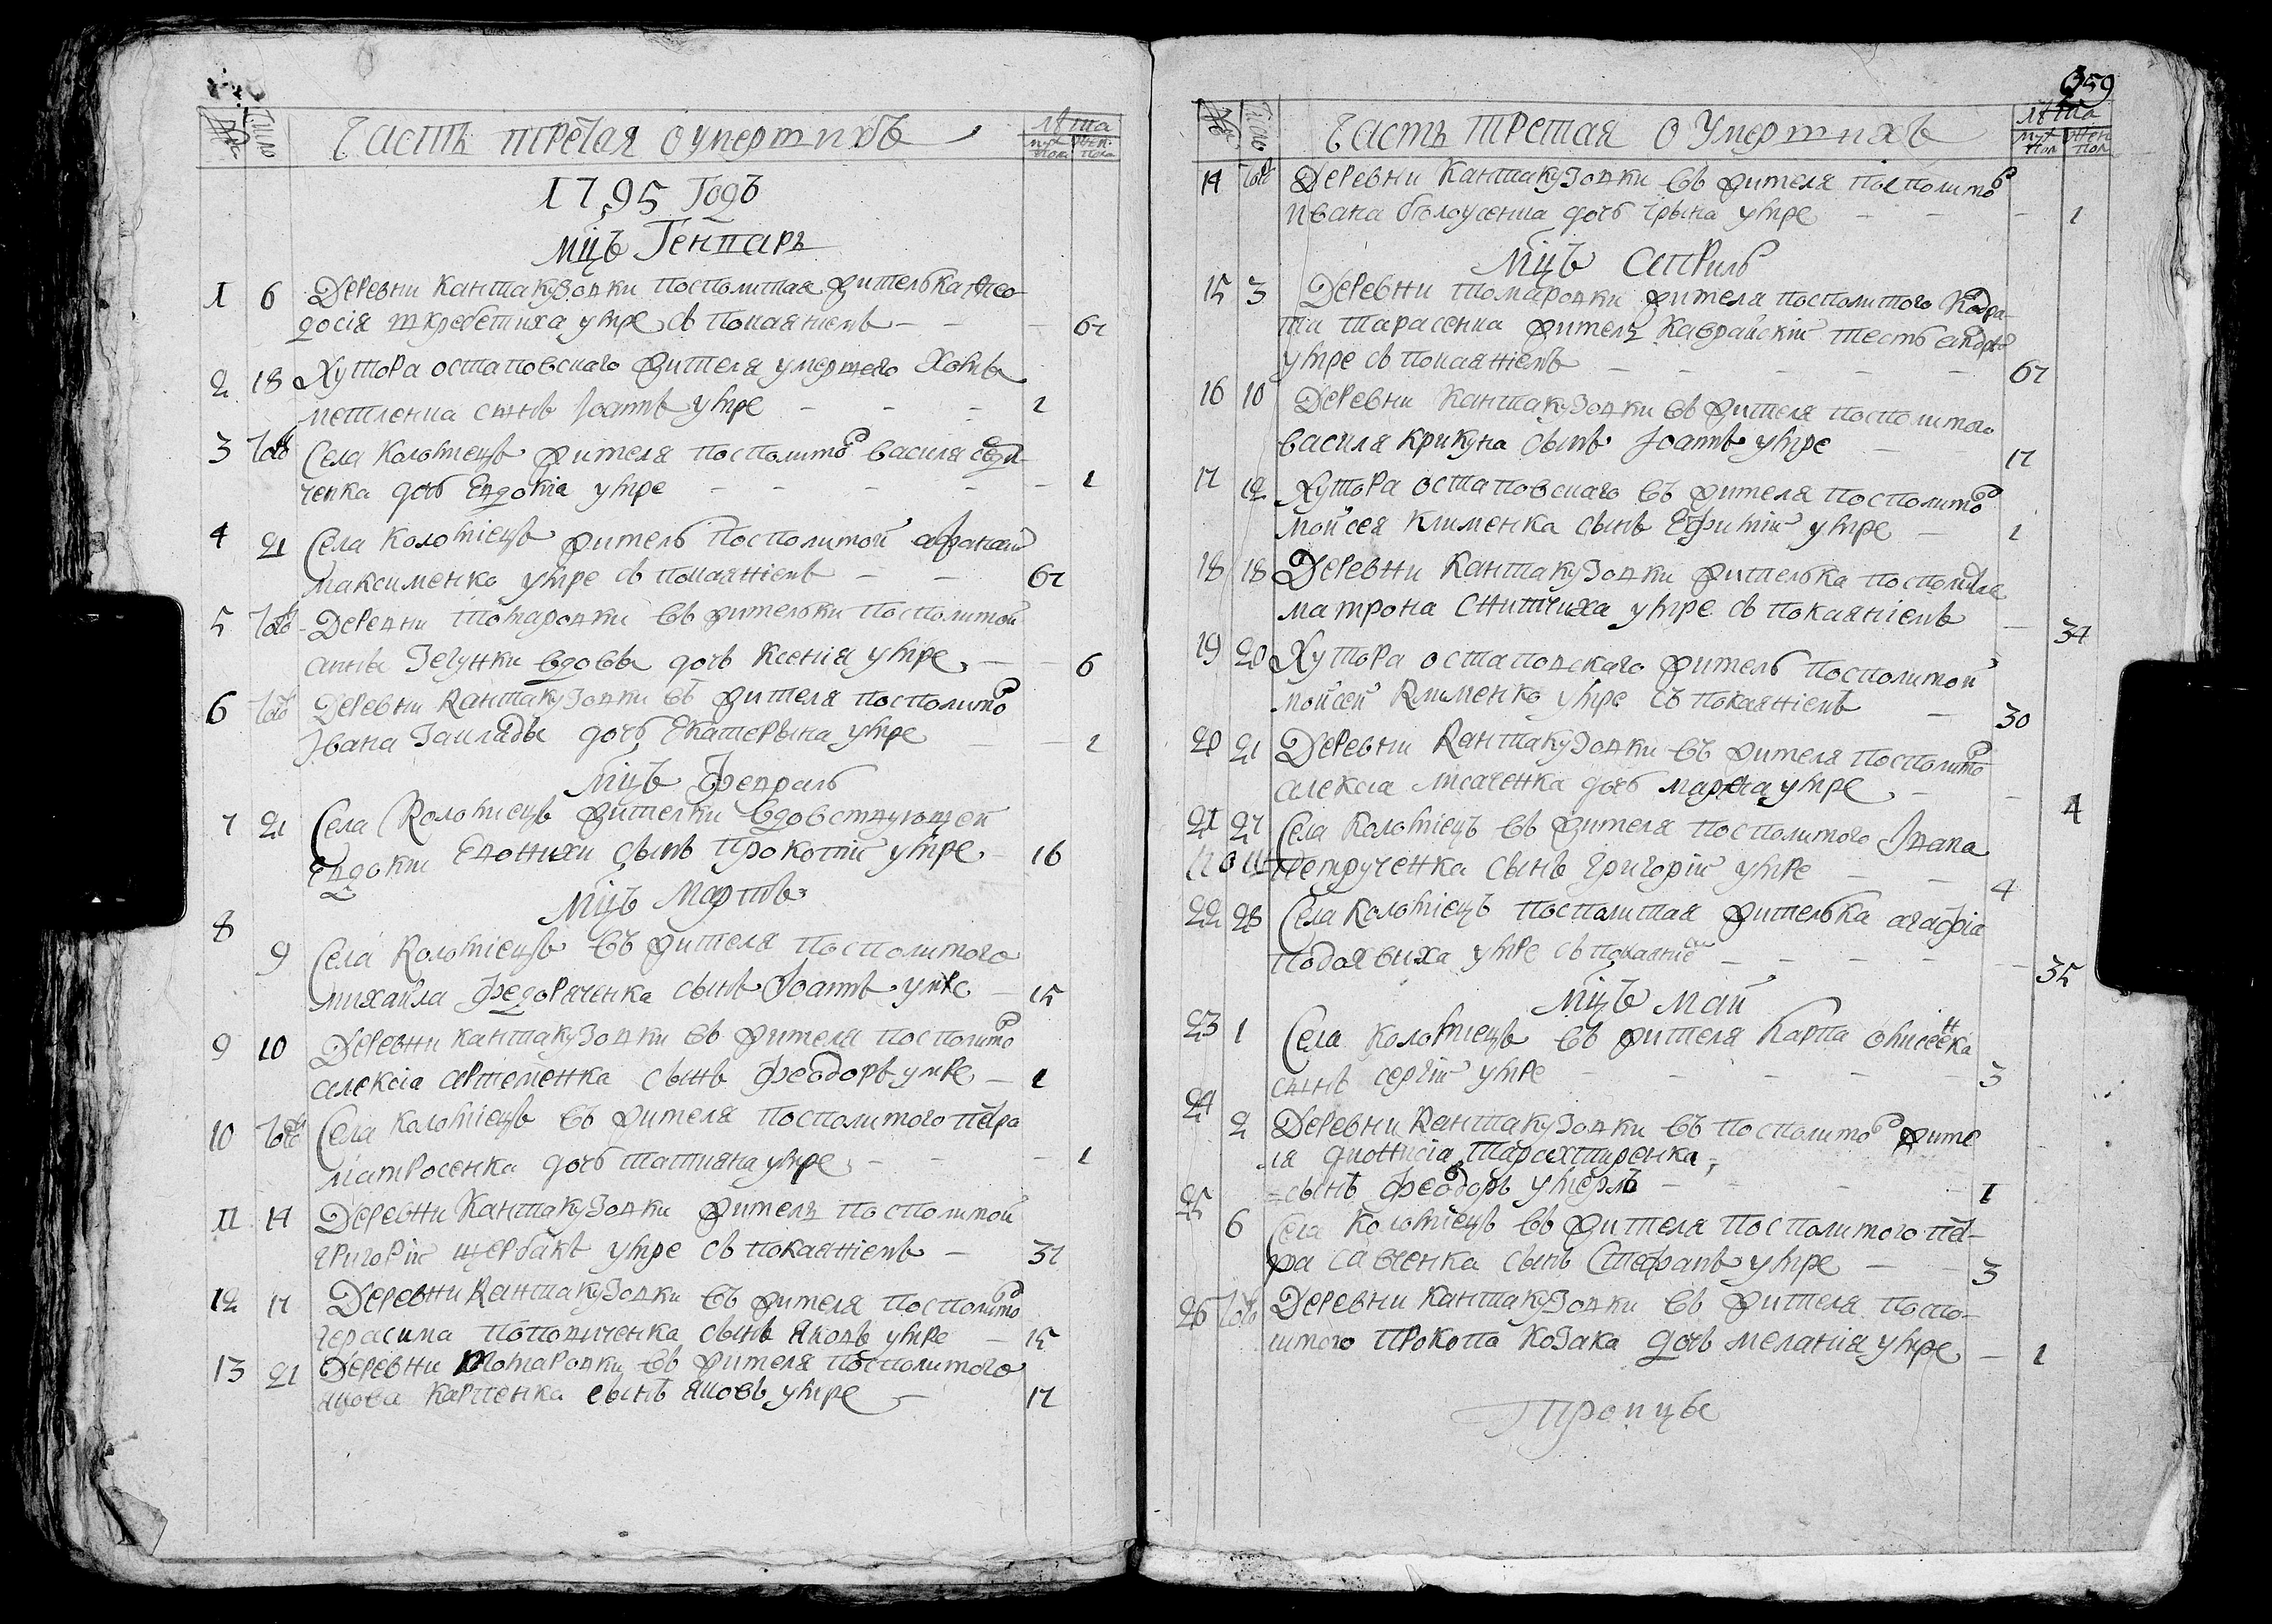 359
Число Часть третая о умерших лѣта
муж. пола жен. пола
1795 Годъ
мцъ Генварь
1 6 Деревни Кантакузовки посполитая жителька Ѳео-
досія шкребетиха умре съ покаяніемъ — 67
2 18 Хутора остаповского жителя умершого Хомы
метленка сынъ Іоаннъ умре — 1
3 тогож Села Коломіецъ жителя посполитого василя
ченка дочь Евдокіа умре — 1
4 21 Села Коломіецъ житель посполитой афанасий
максименко умре съ покаяніемъ — 67
5 тогож Деревни Томаровки въ жительки посполитой
анны Зегунки вдовы дочь Ксенія умре — 6
6 тогож Деревни Кантакузовки въ жителя посполитого
Івана Гаилябы дочь Екатерына умре — 1
мцъ февраль
7 21 Села Коломіецъ жителки вдовствующей
Евдокии Евонихи сынъ Прокопій умре — 16
мцъ мартъ
8 9 Села Коломіецъ въ жителя посполитого
михайла федоряченка сынъ Іоаннъ умре — 15
9 10 Деревни кантакузовки въ жителя посполитого
алексіа артеменка сынъ феодоръ умре — 1
10 тогож Села Коломіецъ въ жителя посполитого петра
матросенка дочь татияна умре — 1
11 14 Деревни Кантакузовки житель посполитой
григорій щербакъ умре съ покаяніемъ — 37
12 17 Деревни Кантакузовки въ жителя посполитого
герасима поповиченка сынъ яковъ умре — 15
13 21 Деревни Томаровки въ жителя посполитого
якова карпенка сынъ яковъ умре — 17
Число Часть третая о умершихъ лѣта
муж пол жен пол
14 тогож Деревни Кантакузовки въ жителя посполитого
ивана бѣлоусенка дочь ірына умре — 1
мцъ Априль
15 3 Деревни томаровки жителя посполитого Кодра-
ти тарасенка житель Каврайскій тесть андрей
умре съ покаяніемъ — 67
16 10 Деревни Кантакузовки въ жителя посполитого
василя крикуна сынъ Іоаннъ умре — 17
17 12 Хутора остаповского въ жителя посполитого
мойсея клименка сынъ Ефимій умре — 1
18 18 Деревни Кантакузовки жителька посполитая
матрона снитчиха умре съ покаяніемъ — 34
19 20 Хутора остаповского житель посполитой
мойсей клименко умре съ покаяніемъ — 30
20 21 Деревни Кантакузовки въ жителя посполитого
алексіа лисаченка дочь марфа умре — 4
21 27 Села Коломіецъ въ жителя посполитого Івана
петрученка сынъ григорій умре — 4
22 28 Села Коломіецъ посполитая жителька агафіа
водоявиха умре съ покаяніе — 35
мцъ май
23 1 Села Коломіецъ въ жителя Карпа
сынъ сергій умре — 3
24 2 Деревни Кантакузовки въ посполитого жите
ля диониссіа Тарахтиренка
сынъ феодоръ умерлъ — 1
25 6 Села Коломіецъ въ жителя посполитого пет-
ра савченка сынъ Стефанъ умре — 3
26 тогож Деревни Кантакузовки въ жителя поспо-
литого прокопа козака дочь меланія умре — 1